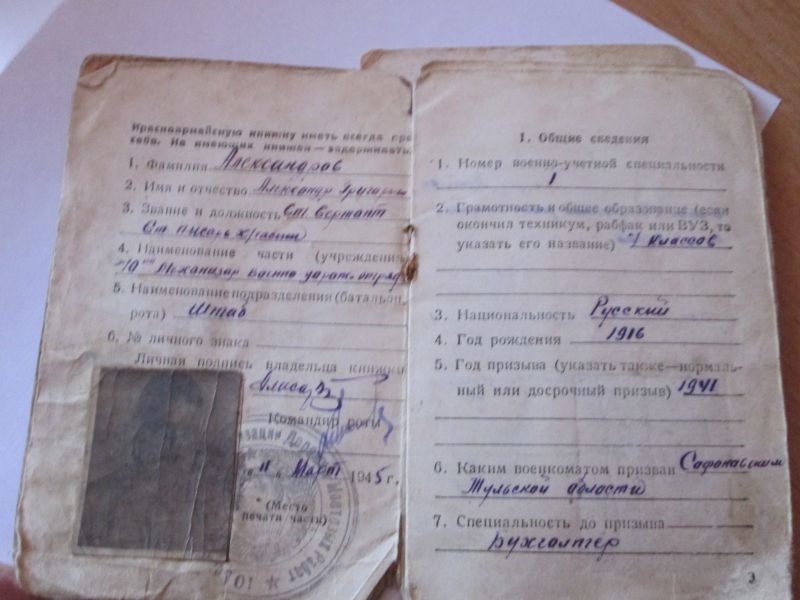 Красноармейскую книжку иметь всегда при
себе. Не имеющих книжек—задерживать.
1. Фамилия Александров
2. Имя и отчество Александр Григорьев
3. Звание и должность Ст. Сержант
Ст. писарь х/части
4. Наименование части (учреждения
5. Наименование подразделения (батальон,
рота) Штаб
6. № личного знака
Личная подпись владельца книжки
Командир роты
11 Март 1945 г.
(Место
печати части)
I. Общие сведения
1. Номер военно-учетной специальности
1
2. Грамотность и общее образование (если
окончил техникум, рабфак или ВУЗ, то
указать его название) 7 классов
3. Национальность Русский
4. Год рождения 1916
5. Год призыва (указать также—нормаль-
ный или досрочный призыв) 1941
6. Каким военкоматом призван
Тульской области
7. Специальность до призыва
Бухгалтер
3